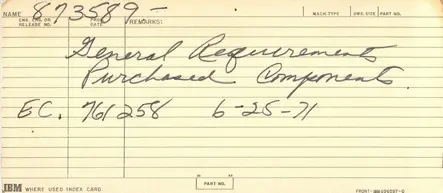 NAME 873589- MACH.TYPE DWG.SIZE PART NO.
RELEASE NO. DATE REMARKS:
General Requirements
Purchased Components
EC. 761258 6-25-71
PART NO.
IBM WHERE USED INDEX CARD